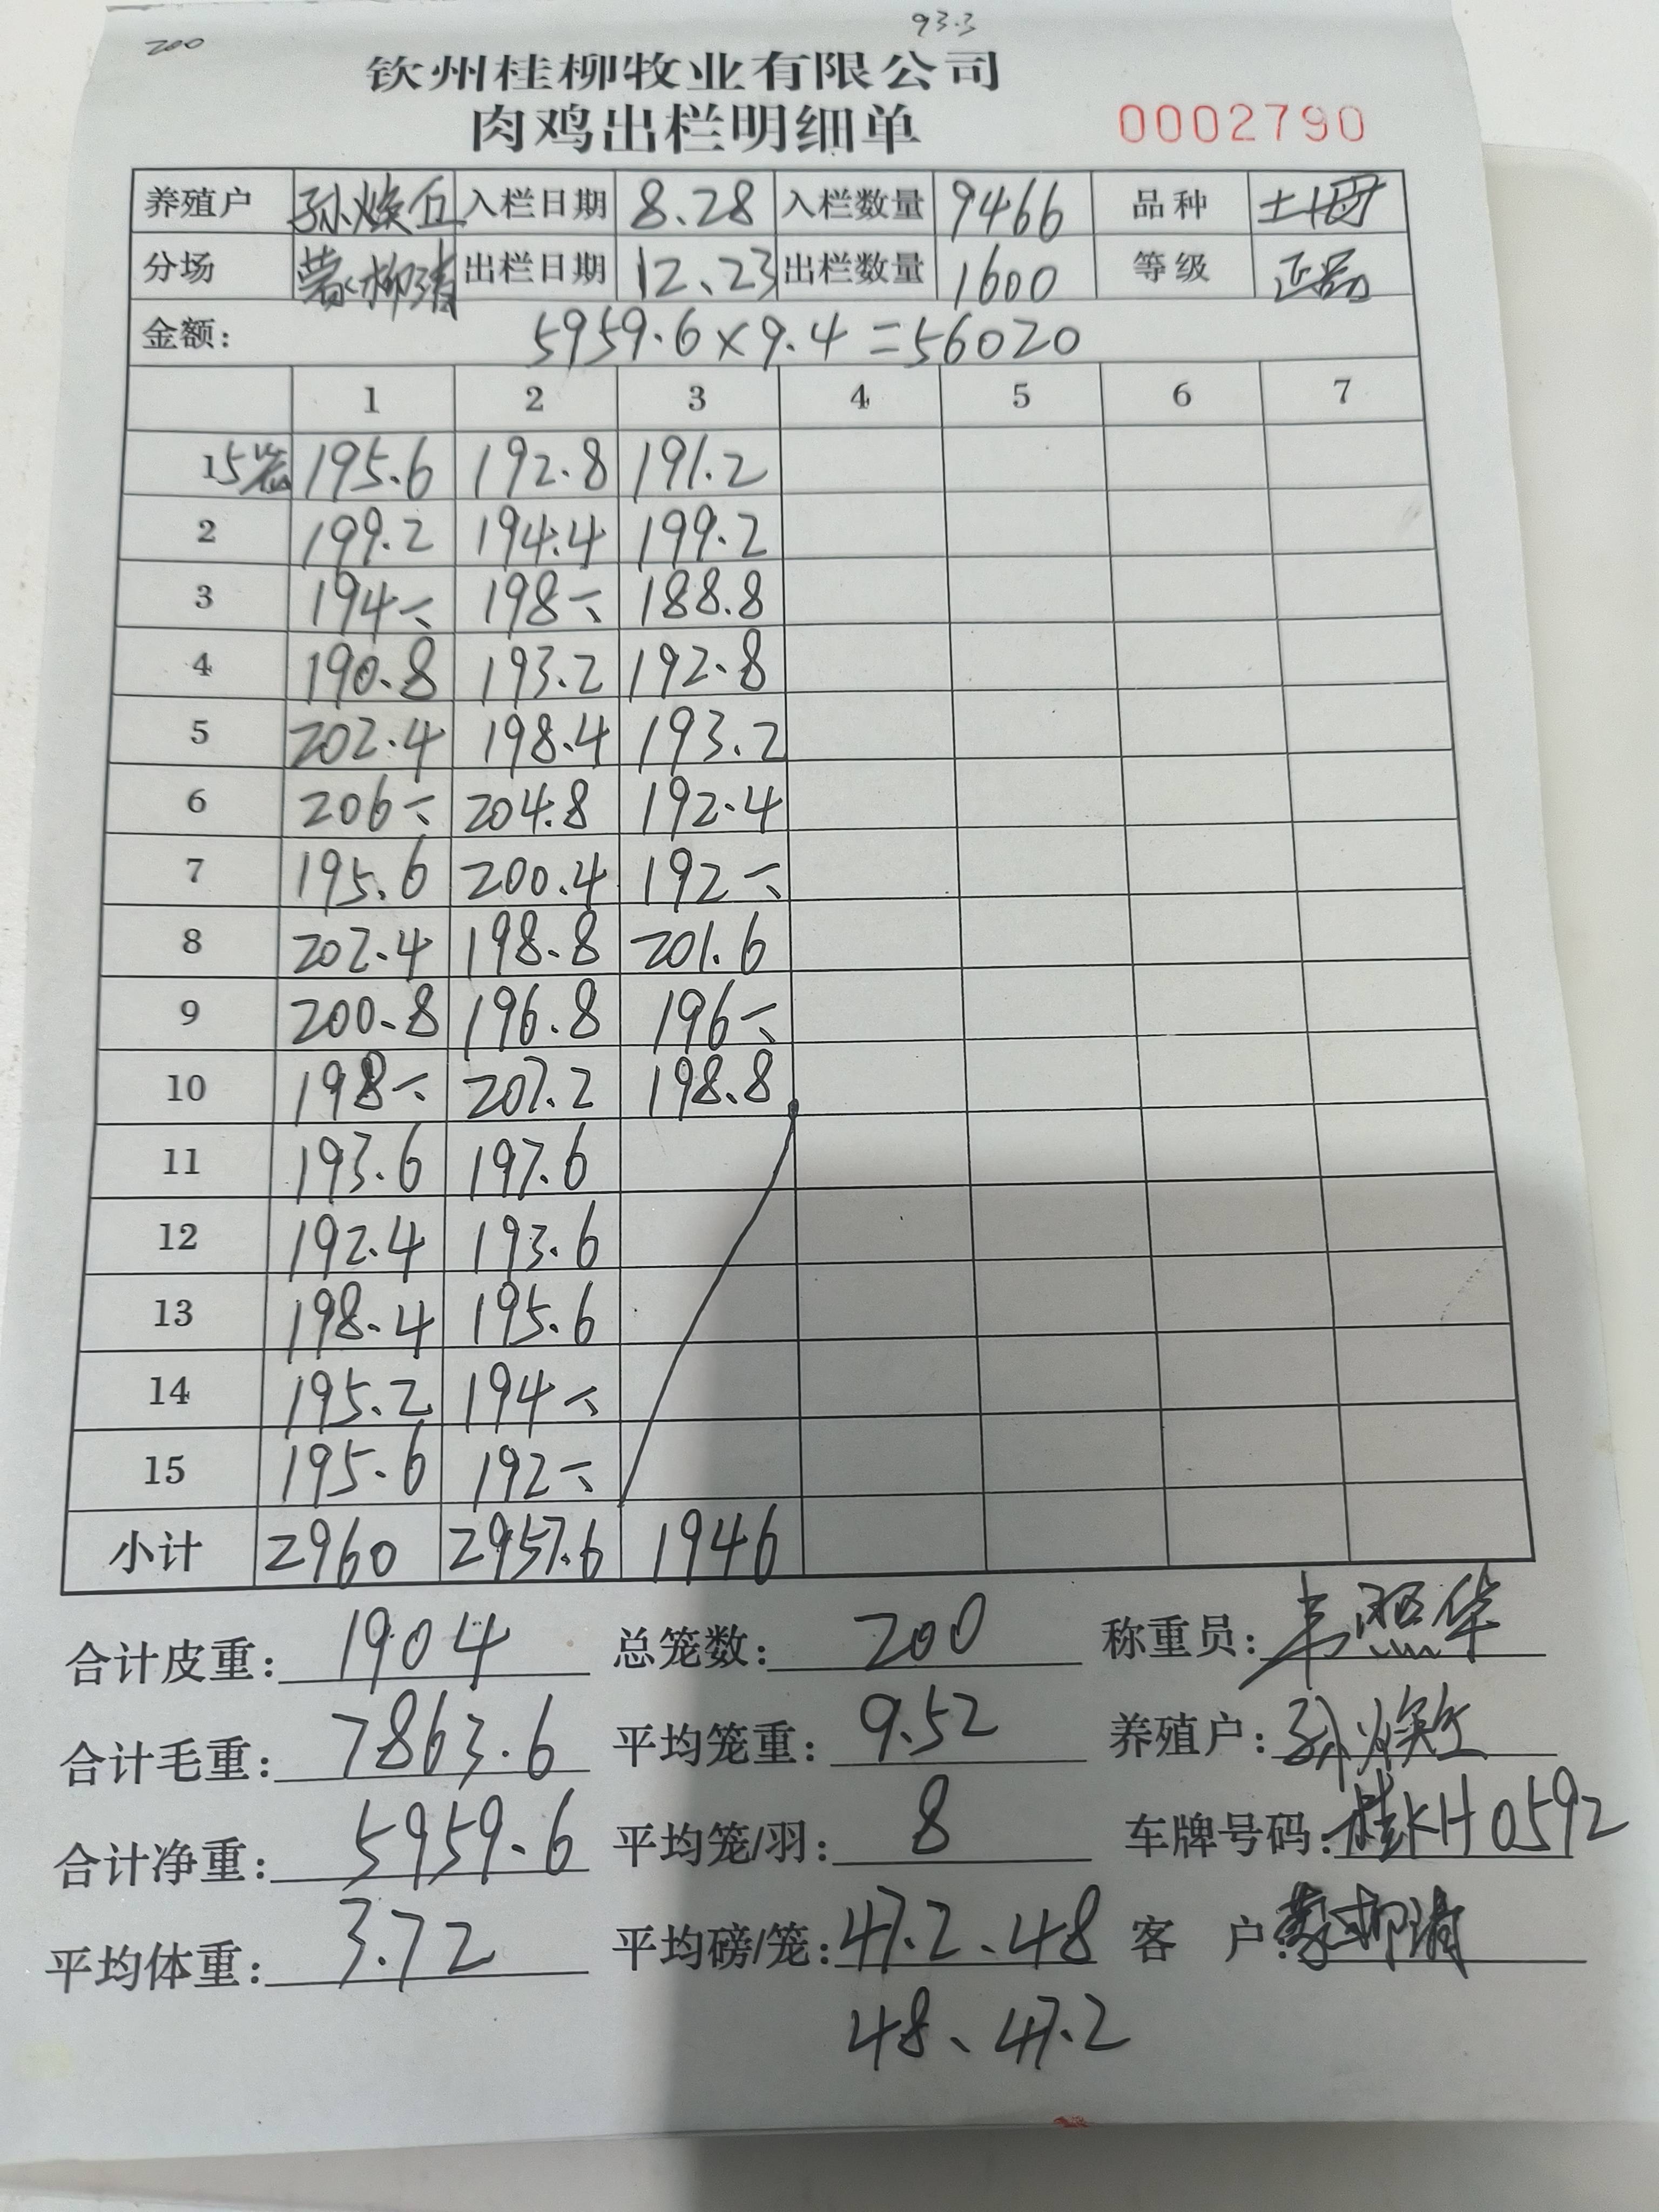 200 93.3
钦州桂柳牧业有限公司
肉鸡出栏明细单 0002790
养殖户 孙焕 入栏日期 8.28 入栏数量 9466 品种 土
分场 蒙柳清 出栏日期 12.23 出栏数量 1600 等级 正品
金额: 5959.6×9.4=56020
1 2 3 4 5 6 7
15笼 195.6 192.8 191.2
2 199.2 194.4 199.2
3 194 198 188.8
4 190.8 193.2 192.8
5 202.4 198.4 193.2
6 206 204.8 192.4
7 195.6 200.4 192
8 202.4 198.8 201.6
9 200.8 196.8 196
10 198 207.2 198.8
11 193.6 197.6
12 192.4 193.6
13 198.4 195.6
14 195.2 194
15 195.6 192
小计 2960 2957.6 1946
合计皮重: 1904 总笼数: 200 称重员: 韦照华
合计毛重: 7863.6 平均笼重: 9.52 养殖户: 孙焕
合计净重: 5959.6 平均笼/羽: 8 车牌号码: 桂KH0592
平均体重: 3.72 平均磅/笼: 47.2、48 客户: 蒙柳清
48、47.2